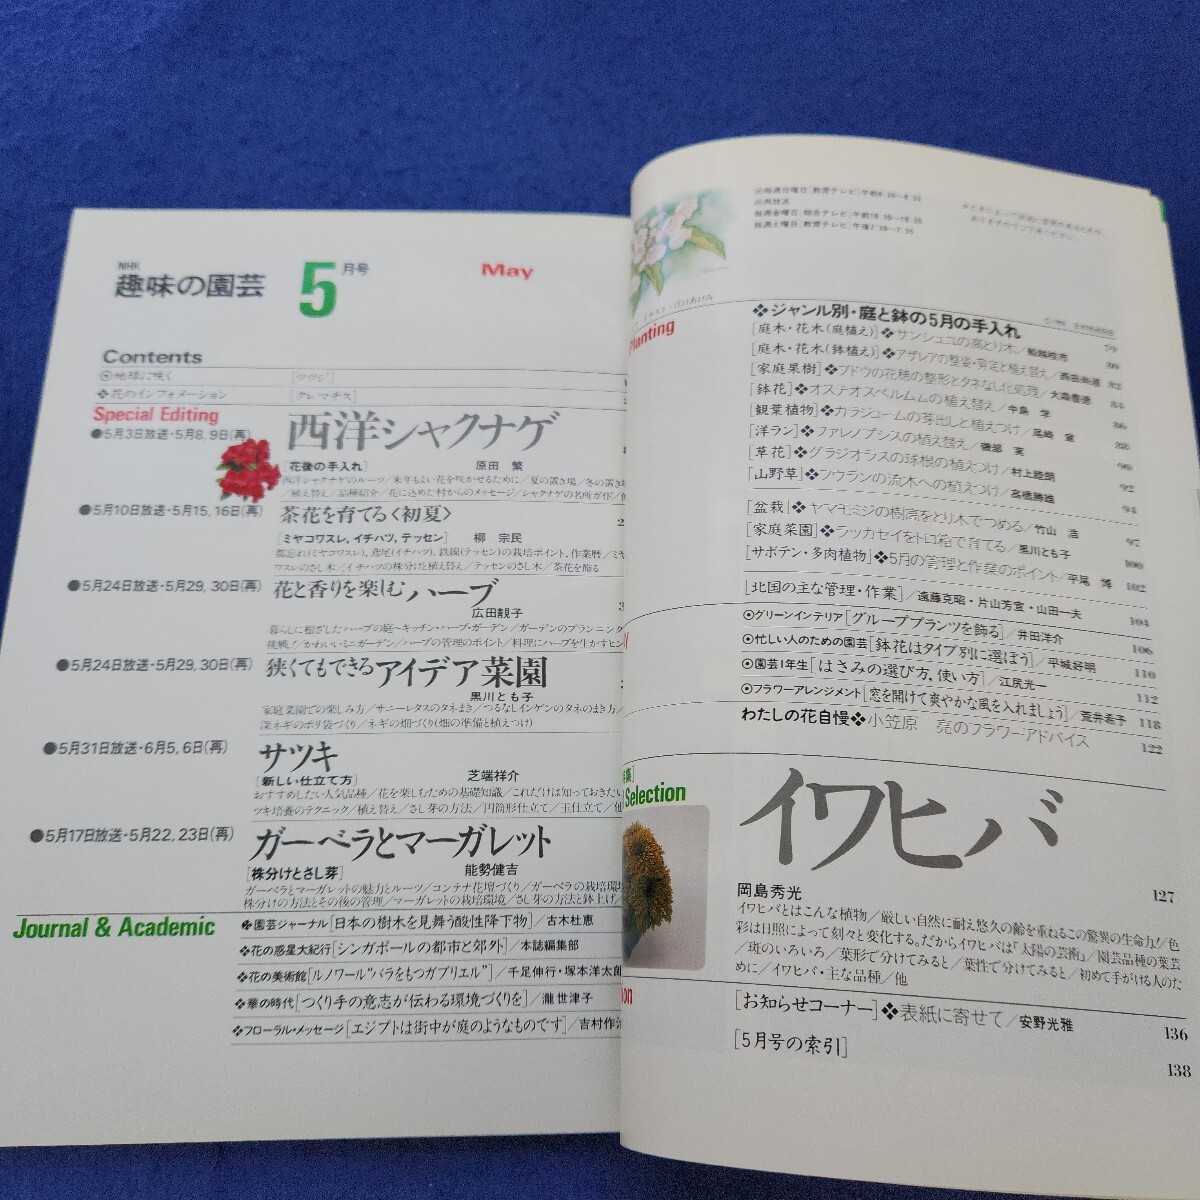 NHK
趣味の園芸 5 月号 May
Contents
地球に咲く [ツツジ]
❖花のインフォメーション [クレマチス]
Special Editing
●5月3日放送・5月8, 9日(再) 西洋シャクナゲ
[花後の手入れ] 原田 繁
西洋シャクナゲのルーツ/来年もよい花を咲かせるために/夏の置き場/冬の置き場
/植え替え/品種紹介/花に込めた村からのメッセージ/シャクナゲの名所ガイド/他
●5月10日放送・5月15, 16日(再) 茶花を育てる〈初夏〉
[ミヤコワスレ, イチハツ, テッセン] 柳 宗民
都忘れ(ミヤコワスレ), 鳶尾(イチハツ), 鉄線(テッセン)の栽培ポイント, 作業暦/ミヤ
ワスレのさし木/イチハツの株分けと植え替え/テッセンのさし木/茶花を飾る
●5月24日放送・5月29, 30日(再) 花と香りを楽しむハーブ
広田靚子
暮らしに根ざしたハーブの庭〜キッチン・ハーブ・ガーデン/ガーデンのプランニング
挑戦!/かわいいミニガーデン/ハーブの管理のポイント/料理にハーブを生かすヒン
●5月24日放送・5月29, 30日(再) 狭くてもできるアイデア菜園
黒川とも子
家庭菜園での楽しみ方/サニーレタスのタネまき/つるなしインゲンのタネのまき方
深ネギのポリ袋づくり/ネギの畑づくり(畑の準備と植えつけ)
●5月31日放送・6月5, 6日(再) サツキ
[新しい仕立て方] 芝端祥介
おすすめしたい人気品種/花を楽しむための基礎知識/これだけは知っておきたい
ツキ培養のテクニック/植え替え/さし芽の方法/円筒形仕立て/玉仕立て/他
●5月17日放送・5月22, 23日(再) ガーベラとマーガレット
[株分けとさし芽] 能勢健吉
ガーベラとマーガレットの魅力とルーツ/コンテナ花壇づくり/ガーベラの栽培環境
株分けの方法とその後の管理/マーガレットの栽培環境/さし芽の方法と鉢上げ
Journal & Academic
❖園芸ジャーナル[日本の樹木を見舞う酸性降下物]/古木杜恵
❖花の惑星大紀行[シンガポールの都市と郊外]/本誌編集部
❖花の美術館[ルノワール"バラをもつガブリエル"]/千足伸行・塚本洋太郎
❖華の時代[つくり手の意志が伝わる環境づくりを]/瀧世津子
❖フローラル・メッセージ[エジプトは街中が庭のようなものです]/吉村作治
毎週日曜日[教育テレビ]午前8:30〜8:55
再放送
毎週金曜日[総合テレビ]午前10:30〜10:55
毎週土曜日[教育テレビ]午後7:30〜7:55
Planting
❖ジャンル別・庭と鉢の5月の手入れ
[庭木・花木(庭植え)]❖サンシュユの高とり木/船越桂市 79
[庭木・花木(鉢植え)]❖アザレアの整姿・剪定と植え替え/西田尚道 80
[家庭果樹]❖ブドウの花穂の整形とタネなし化処理/大森直樹 82
[鉢花]❖オステオスペルムムの植え替え/中島 学 84
[観葉植物]❖カラジュームの芽出しと植えつけ/尾崎 章 86
[洋ラン]❖ファレノプシスの植え替え/磯部 実 88
[草花]❖グラジオラスの球根の植えつけ/村上睦朗 90
[山野草]❖フウランの流木への植えつけ/高橋勝雄 92
[盆栽]❖ヤマモミジの樹高をとり木でつめる/竹山 浩 94
[家庭菜園]❖ラッカセイをトロ箱で育てる/黒川とも子 97
[サボテン・多肉植物]❖5月の管理と作業のポイント/平尾 博 100
[北国の主な管理・作業]/遠藤克昭・片山芳宣・山田一夫 102
⦿グリーンインテリア[グループプランツを飾る]/井田洋介 104
⦿忙しい人のための園芸[鉢花はタイプ別に選ぼう]/平城好明 106
⦿園芸1年生[はさみの選び方, 使い方]/江尻光一 110
⦿フラワーアレンジメント[窓を開けて爽やかな風を入れましょう]/荒井希子 112
118
わたしの花自慢❖小笠原 亮のフラワーアドバイス 122
集]
Selection
イワヒバ
岡島秀光 127
イワヒバとはこんな植物/厳しい自然に耐え悠久の齢を重ねるこの驚異の生命力!/色
彩は日照によって刻々と変化する。だからイワヒバは「太陽の芸術」/園芸品種の葉芸
/斑のいろいろ/葉形で分けてみると/葉性で分けてみると/初めて手がける人のた
めに/イワヒバ・主な品種/他
[お知らせコーナー]❖表紙に寄せて/安野光雅 136
[5月号の索引] 138